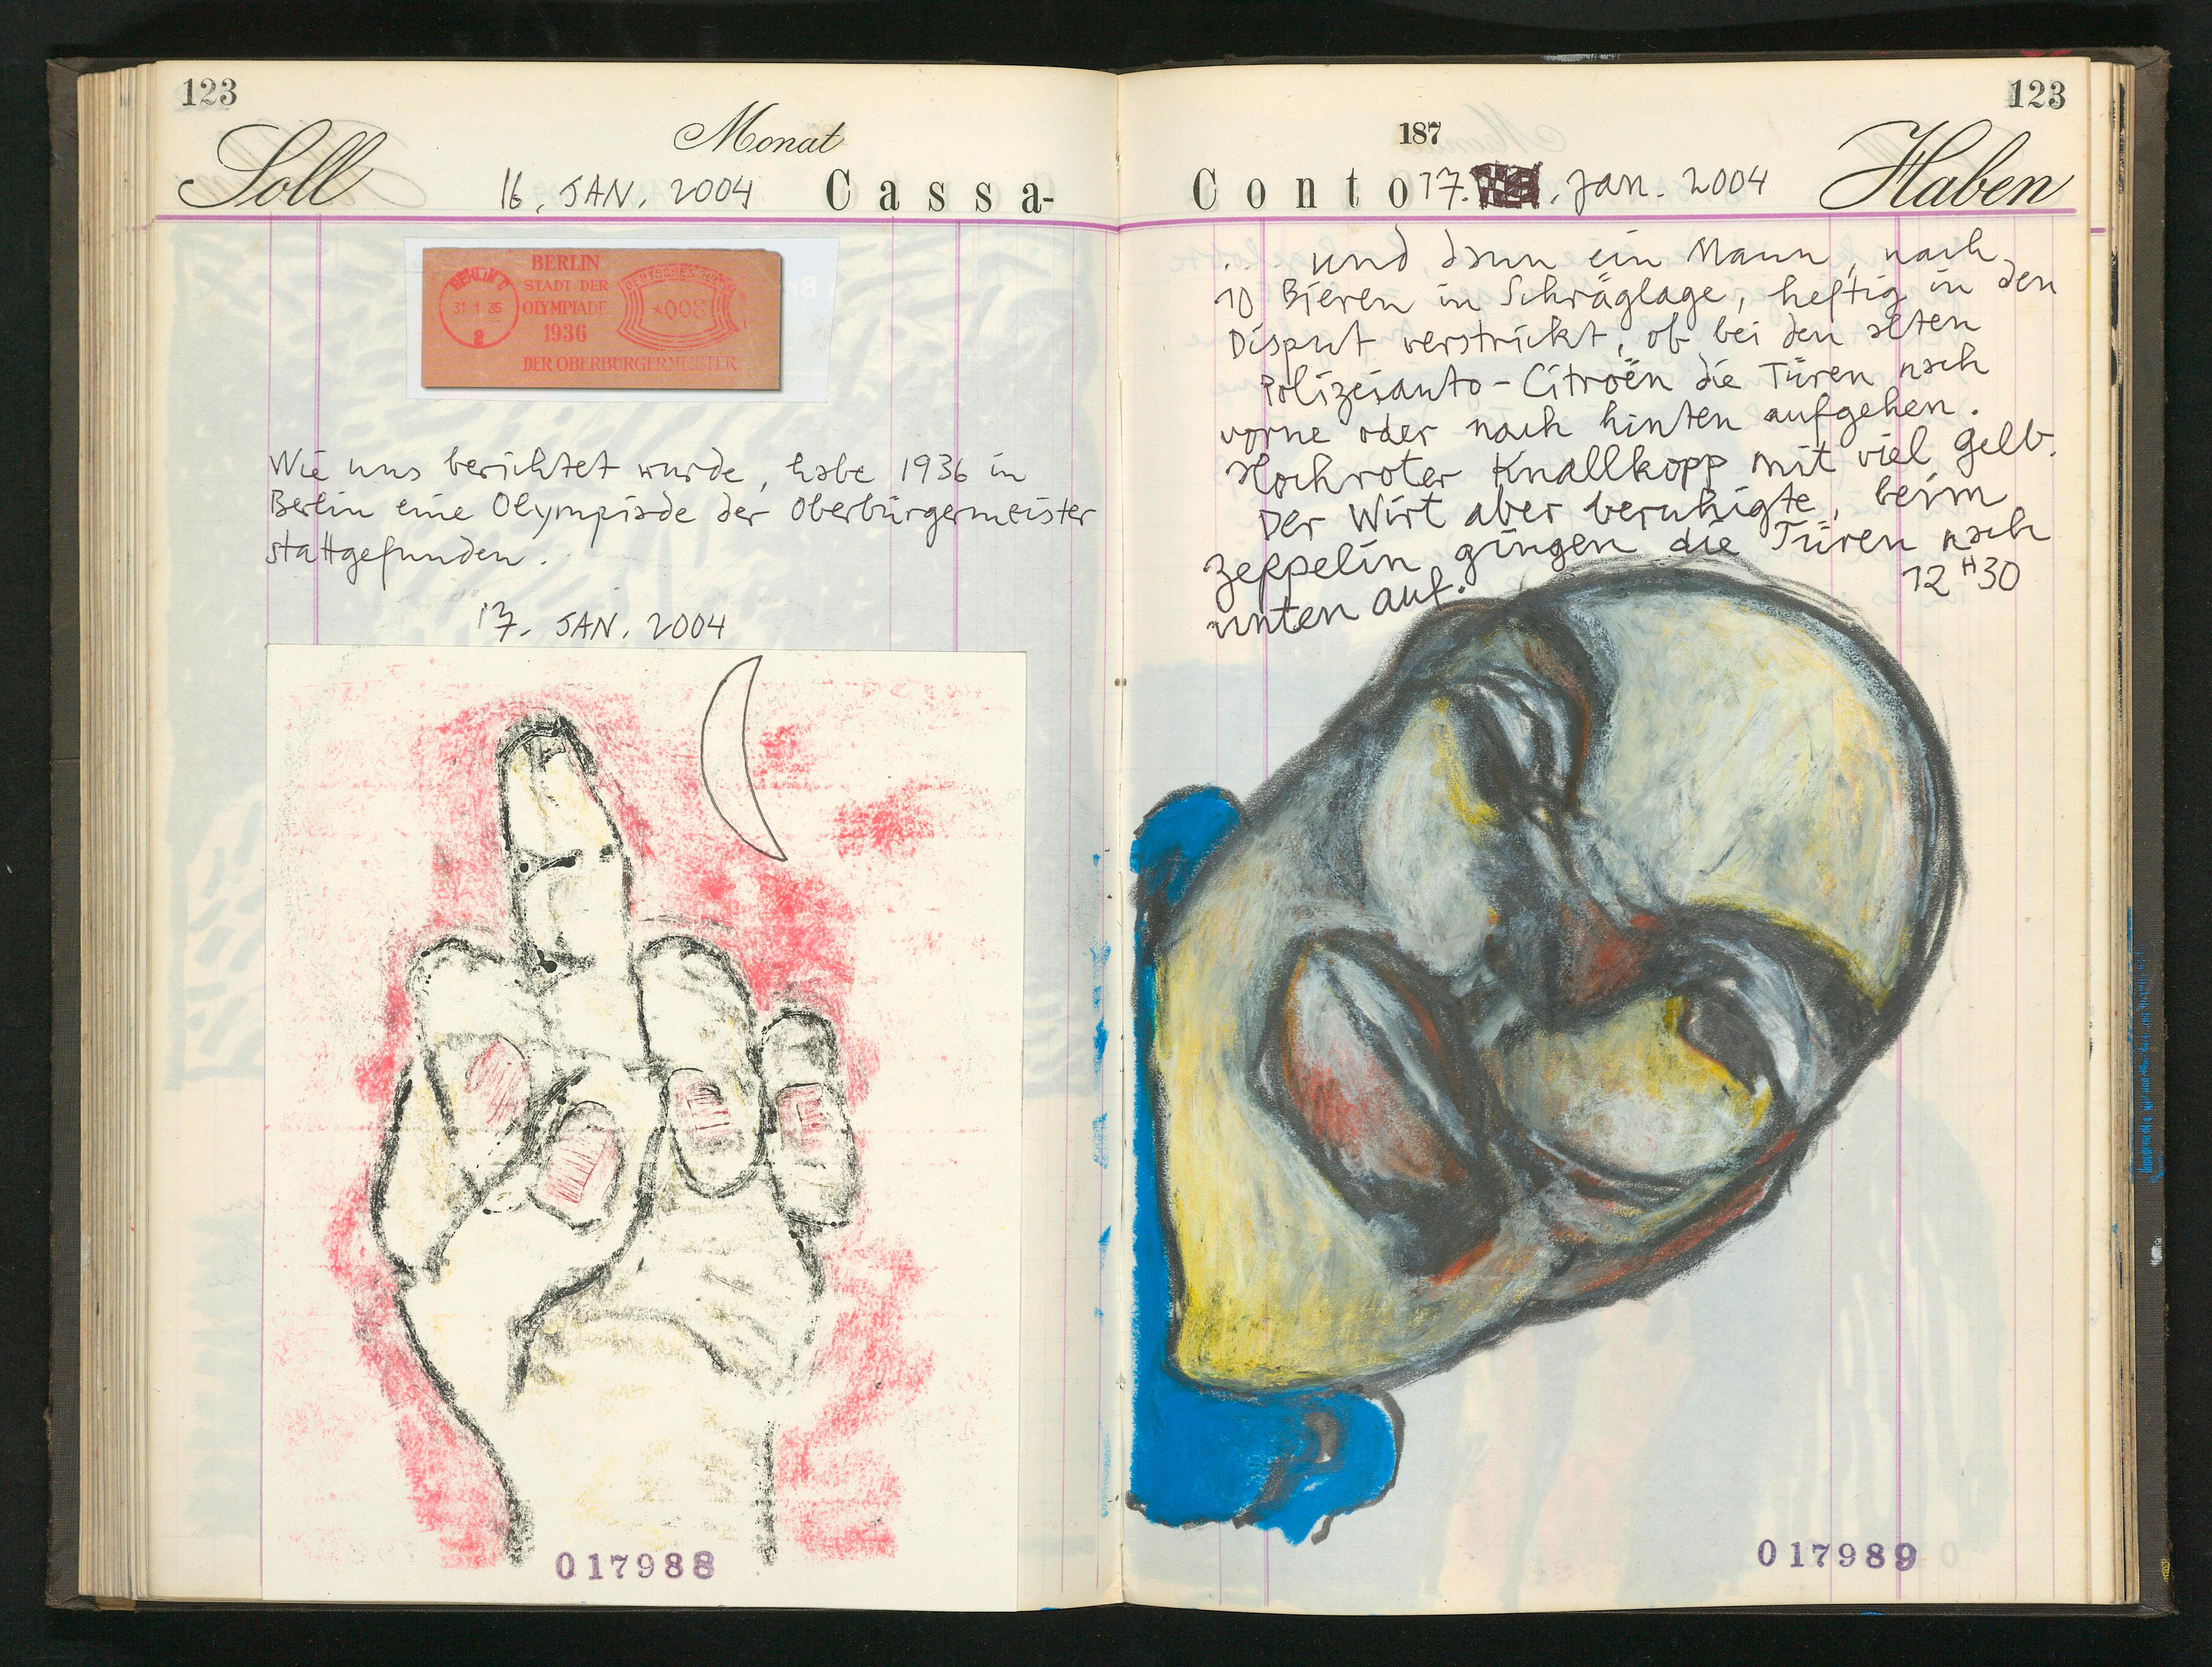 123
Soll
Monat
16. JAN. 2004
Cassa-
BERLIN C
31 1 35
2
BERLIN
STADT DER
OLYMPIADE
1936
DEUTSCHES REICH
*008
DER OBERBÜRGERMEISTER
Wie uns berichtet wurde, habe 1936 in
Berlin eine Olympiade der Oberbürgermeister
stattgefunden.
17. JAN. 2004
017988
123
187
Conto
17. Jan. 2004
Haben
... und dann ein Mann, nach
10 Bieren in Schräglage, heftig in den
Disput verstrickt, ob bei den alten
Polizeiauto-Citroën die Türen nach
vorne oder nach hinten aufgehen.
Hochroter Knallkopp mit viel Gelb.
Der Wirt aber beruhigte, beim
Zeppelin gingen die Türen nach
unten auf.
12H30
017989